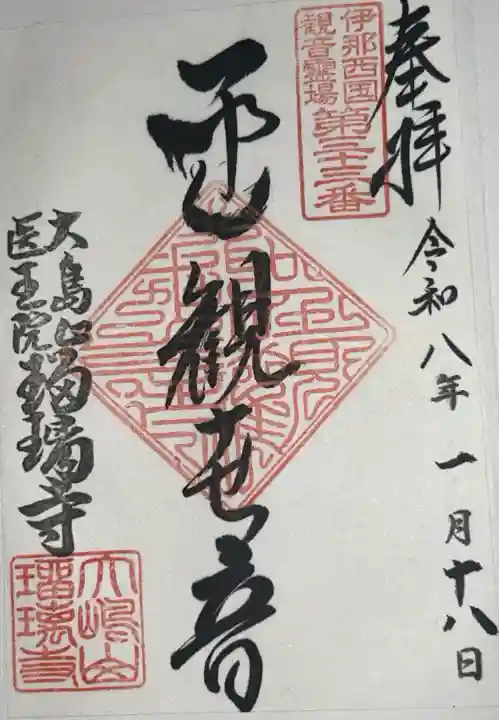 奉拝
令和八年一月十八日
伊那西国
観音霊場
第三十三番
聖觀世音
大島山
医王院
瑠璃寺
大嶋山
瑠璃寺